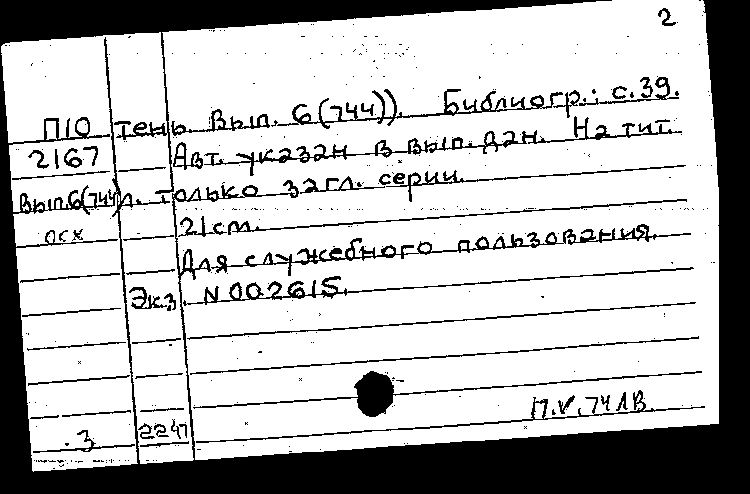 2
П10 тень. Вып. 6(744)). Библиогр.: с.39.
2167 Авт. указан в вып. дан. На тит.
Вып.6(744) л. только загл. серии.
осх 21см.
Для служебного пользования.
Экз. N 002615.
П.V.74 ЛВ.
.3 2247